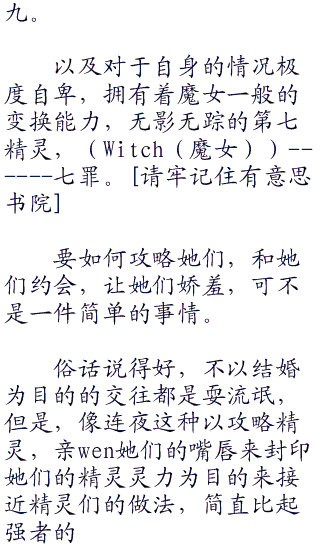 九。
以及对于自身的情况极
度自卑，拥有着魔女一般的
变换能力，无影无踪的第七
精灵，（Witch（魔女））--
-----七罪。[请牢记住有意思
书院]
要如何攻略她们，和她
们约会，让她们娇羞，可不
是一件简单的事情。
俗话说得好，不以结婚
为目的的交往都是耍流氓，
但是，像连夜这种以攻略精
灵，亲wen她们的嘴唇来封印
她们的精灵灵力为目的来接
近精灵们的做法，简直比起
强者的